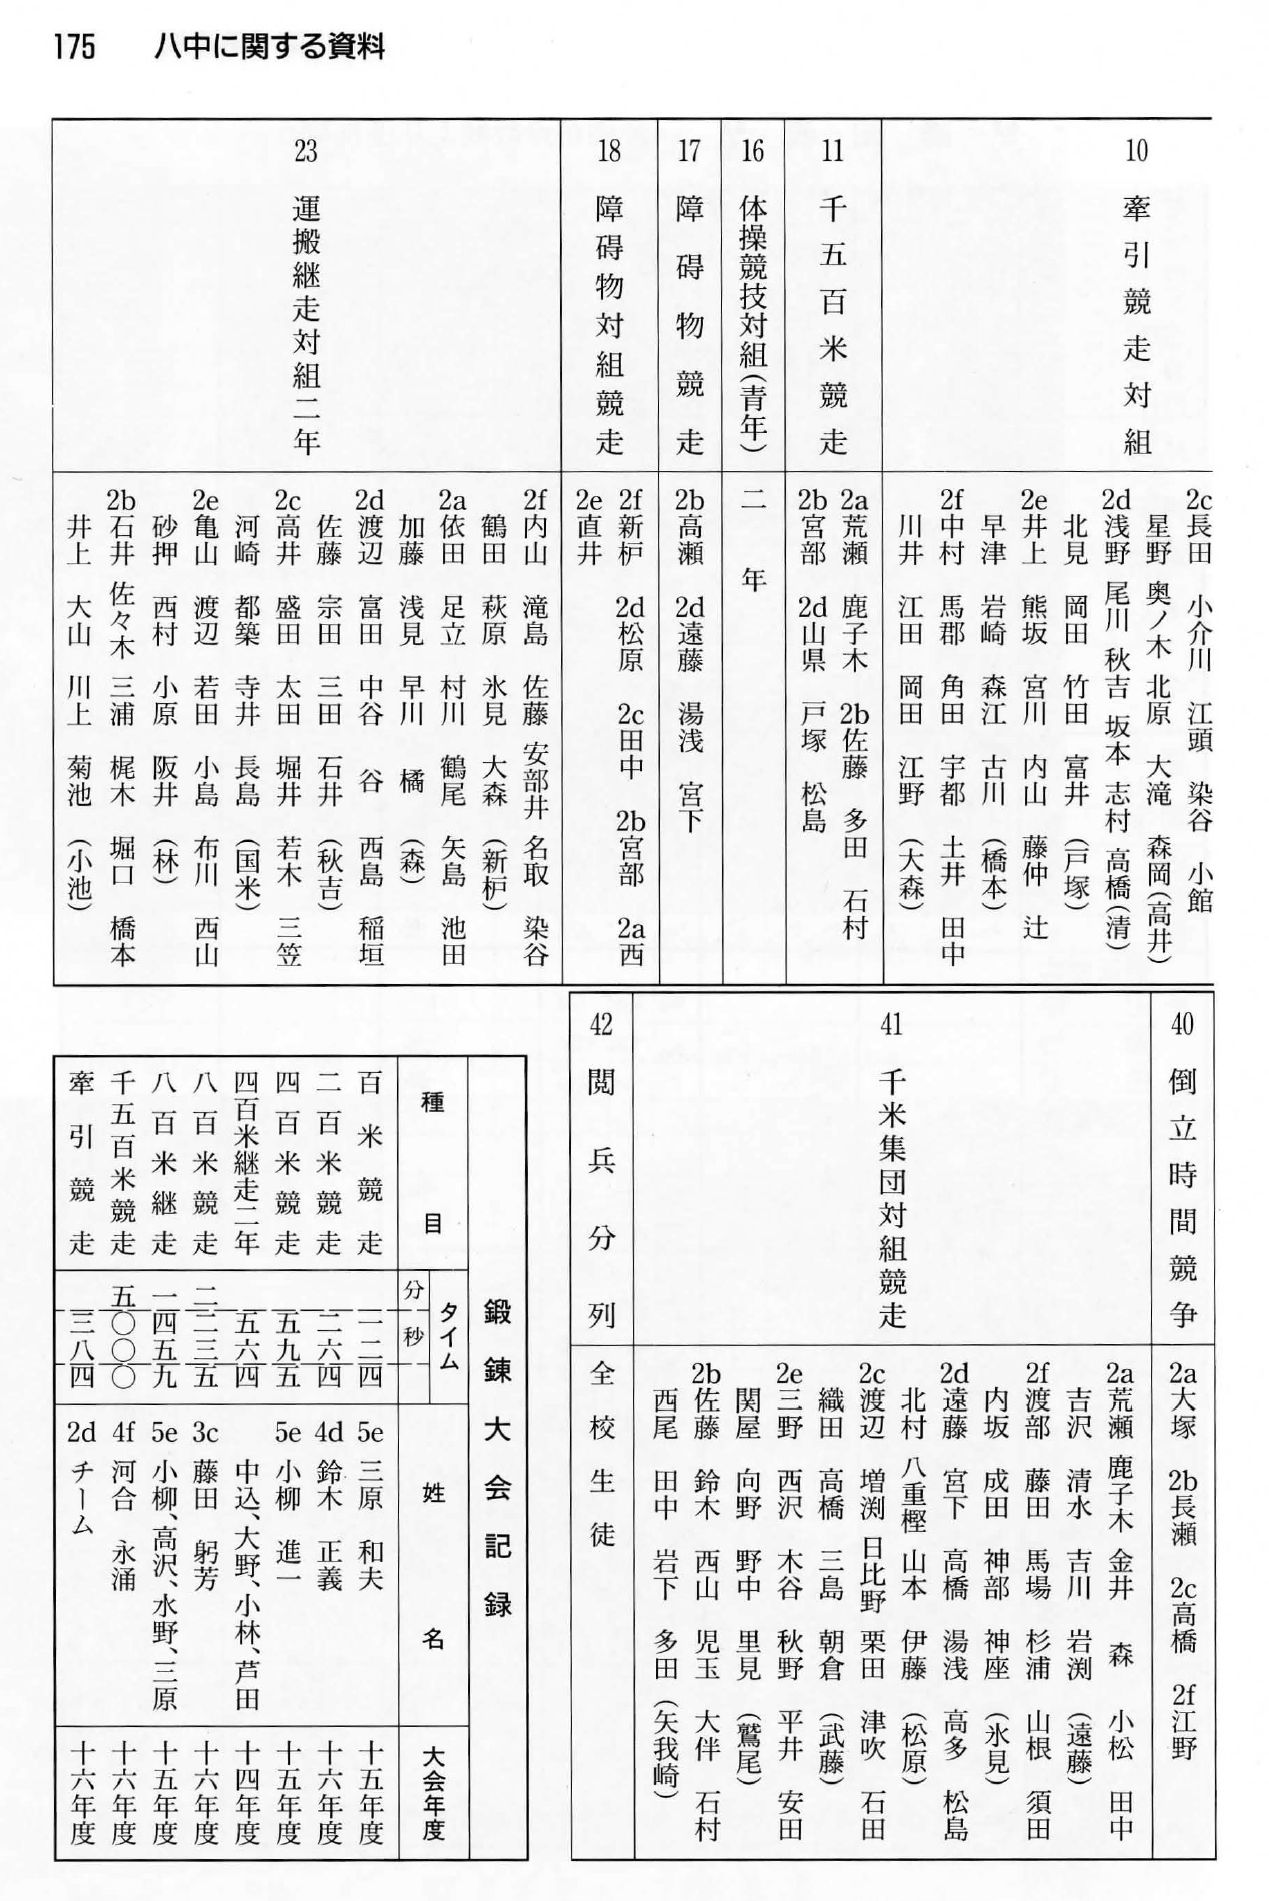 175 八中に関する資料
10 牽引競走対組
2c長田 小介川 江頭 染谷 小館
星野 奥ノ木 北原 大滝 森岡(高井)
2d浅野 尾川 秋吉 坂本 志村 高橋(清)
北見 岡田 竹田 富井 (戸塚)
2e井上 熊坂 宮川 内山 藤仲 辻
早津 岩崎 森江 古川 (橋本)
2f中村 馬郡 角田 宇都 土井 田中
川井 江田 岡田 江野 (大森)
11 千五百米競走
2a荒瀬 鹿子木 2b佐藤 多田 石村
2b宮部 2d山県 戸塚 松島
16 体操競技対組(青年)
二年
17 障碍物競走
2b高瀬 2d遠藤 湯浅 宮下
18 障碍物対組競走
2f新枦 2d松原 2c田中 2b宮部 2a西
2e直井
23 運搬継走対組二年
2f内山 滝島 佐藤 安部井 名取 染谷
鶴田 萩原 氷見 大森 (新枦)
2a依田 足立 村川 鶴尾 矢島 池田
加藤 浅見 早川 橘 (森)
2d渡辺 富田 中谷 谷 西島 稲垣
佐藤 宗田 三田 石井 (秋吉)
2c高井 盛田 太田 堀井 若木 三笠
河崎 都築 寺井 長島 (国米)
2e亀山 渡辺 若田 小島 布川 西山
砂押 西村 小原 阪井 (林)
2b石井 佐々木 三浦 梶木 堀口 橋本
井上 大山 川上 菊池 (小池)
40 倒立時間競争
2a大塚 2b長瀬 2c高橋 2f江野
41 千米集団対組競走
2a荒瀬 鹿子木 金井 森 小松 田中
吉沢 清水 吉川 岩渕 (遠藤)
2f渡部 藤田 馬場 杉浦 山根 須田
内坂 成田 神部 神座 (氷見)
2d遠藤 宮下 高橋 湯浅 高多 松島
北村 八重樫 山本 伊藤 (松原)
2c渡辺 増渕 日比野 栗田 津吹 石田
織田 高橋 三島 朝倉 (武藤)
2e三野 西沢 木谷 秋野 平井 安田
関屋 向野 野中 里見 (鷲尾)
2b佐藤 鈴木 西山 児玉 大伴 石村
西尾 田中 岩下 多田 (矢我崎)
42 閲兵分列
全校生徒
鍛錬大会記録
種目 タイム 分 秒 姓名 大会年度
百米競走 一二 四 5e 三原 和夫 十五年度
二百米競走 二六 四 4d 鈴木 正義 十六年度
四百米競走 五九 五 5e 小柳 進一 十五年度
四百米継走二年 五六 四 中込、大野、小林、芦田 十四年度
八百米競走 二 二三 五 3c 藤田 躬芳 十六年度
八百米継走 一 四五 九 5e 小柳、高沢、水野、三原 十五年度
千五百米競走 五 〇〇 〇 4f 河合 永涌 十六年度
牽引競走 三八 四 2d チーム 十六年度